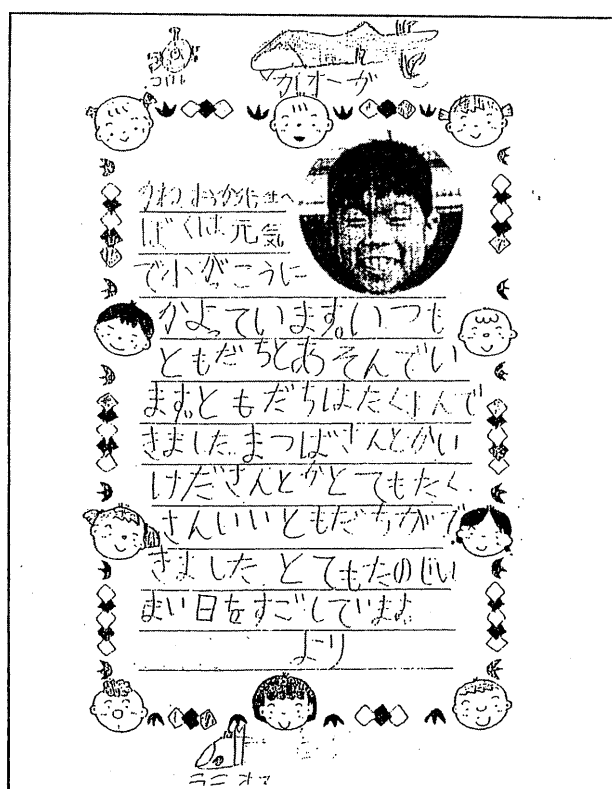 カオーガ
ぼくは元気
で小がっこうに
かよっています。いつも
ともだちとあそんでい
ます。ともだちはたくさんで
きました。まつばさんとかい
けださんとかとてもたく
さんいいともだちがで
きました とてもたのしい
まい日をすごしています。
より